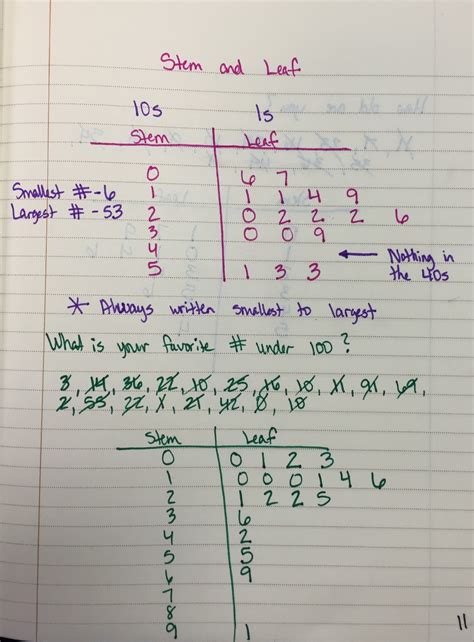 Stem and Leaf
10s 1s
Stem Leaf
0 6 7
Smallest # - 6 1 1 1 4 9
Largest # - 53 2 0 2 2 2 6
3 0 0 9
4 ← Nothing in
5 1 3 3 the 40s
* Always written smallest to largest
What is your favorite # under 100?
3, 14, 36, 22, 10, 25, 16, 10, 11, 91, 69,
2, 55, 22, 1, 21, 42, 0, 10
Stem Leaf
0 0 1 2 3
1 0 0 0 1 4 6
2 1 2 2 5
3 6
4 2
5 5
6 9
7
8
9 1
11